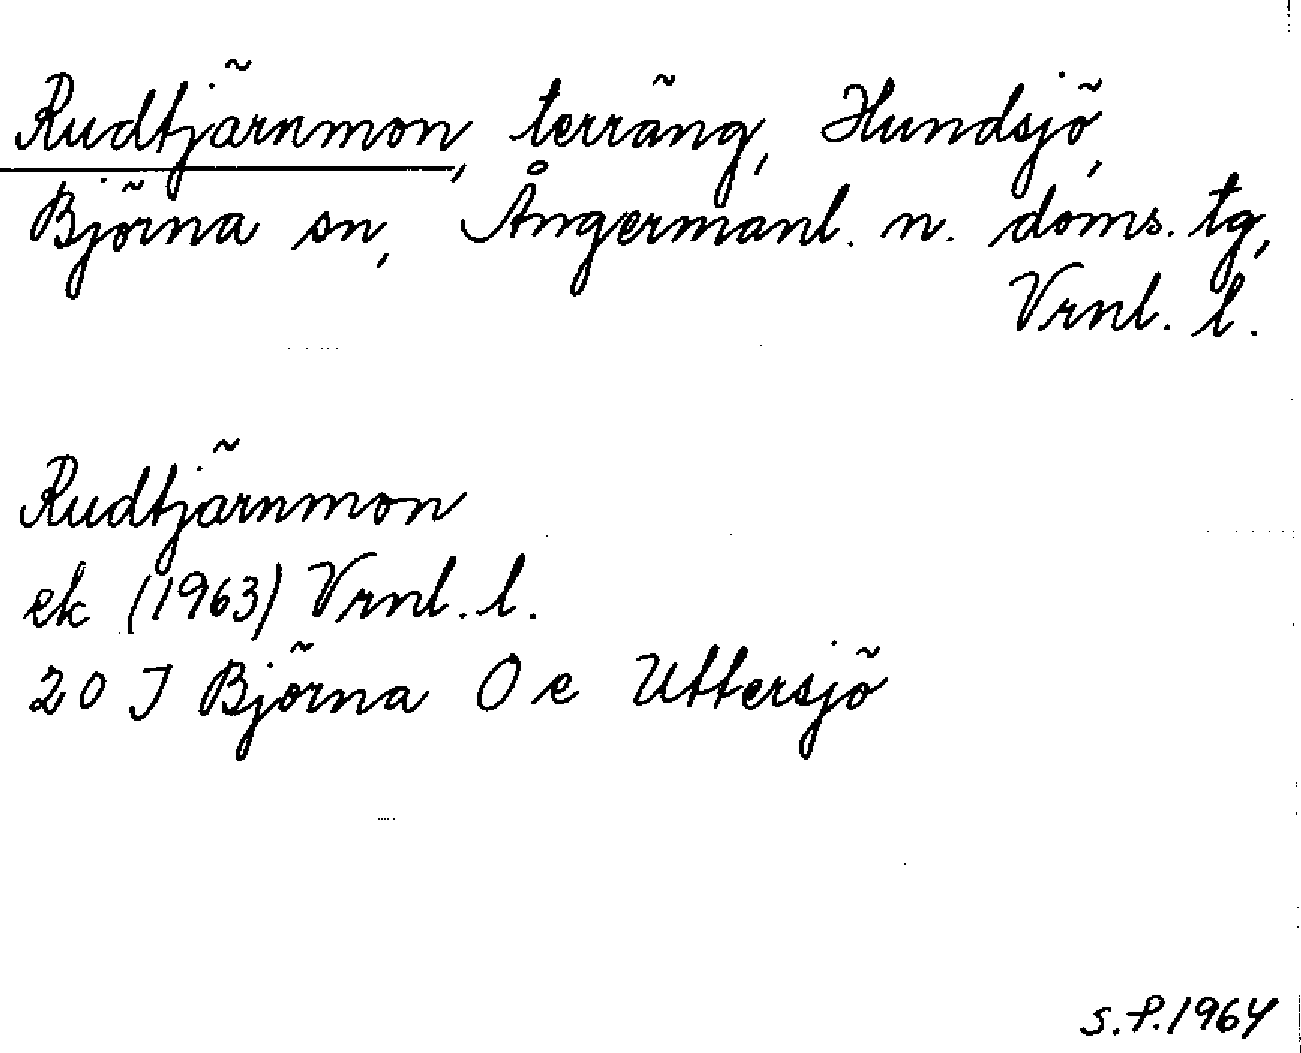 Rudtjärnmon, terräng, Hundsjö,
Björna sn, Ångermanl. n. doms. tg,
Vrnl. l.
Rudtjärnmon
ek (1963) Vrnl. l.
20 J Björna O e Uttersjö
S.P. 1964